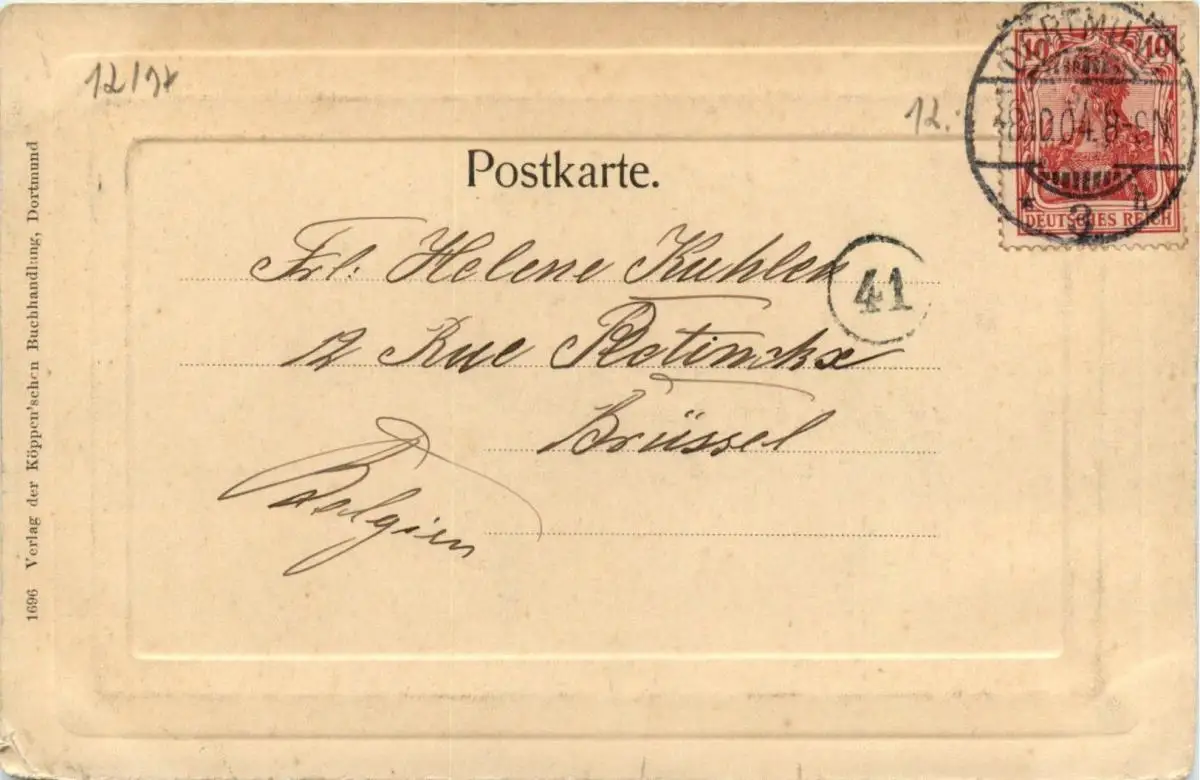 12/
12.
10 10
DORTMUND
18.10.04.8-9N
* 3 h
DEUTSCHES REICH
Postkarte.
Frl. Helene Kuhlen
41
12 Rue
Brüssel
Belgien
1696 Verlag der Köppen'schen Buchhandlung, Dortmund